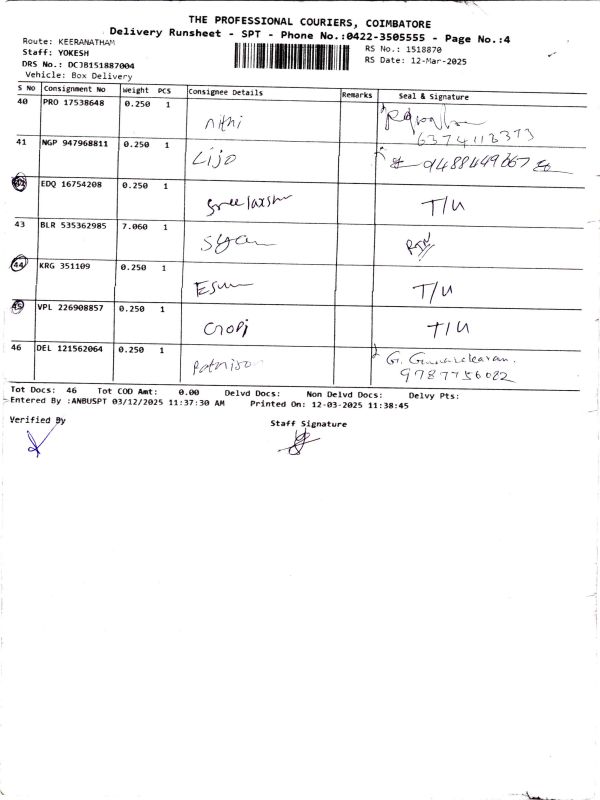 THE PROFESSIONAL COURIERS, COIMBATORE
Delivery Runsheet - SPT - Phone No.:0422-3505555 - Page No.:4
Route: KEERANATHAM
RS No.: 1518870
Staff: YOKESH
RS Date: 12-Mar-2025
DRS No.: DCJB151887004
Vehicle: Box Delivery
S No Consignment No Weight PCS Consignee Details Remarks Seal & Signature
40 PRO 17538648 0.250 1 nithi
6374113373
41 NGP 947968811 0.250 1 Lijo 9488449667
42 EDQ 16754208 0.250 1 T/U
43 BLR 535362985 7.060 1
44 KRG 351109 0.250 1 T/U
45 VPL 226908857 0.250 1 Gopi T/U
46 DEL 121562064 0.250 1 G. Gunasekaran.
9787756022
Tot Docs: 46 Tot COD Amt: 0.00 Delvd Docs: Non Delvd Docs: Delvy Pts:
Entered By :ANBUSPT 03/12/2025 11:37:30 AM Printed On: 12-03-2025 11:38:45
Verified By
Staff Signature